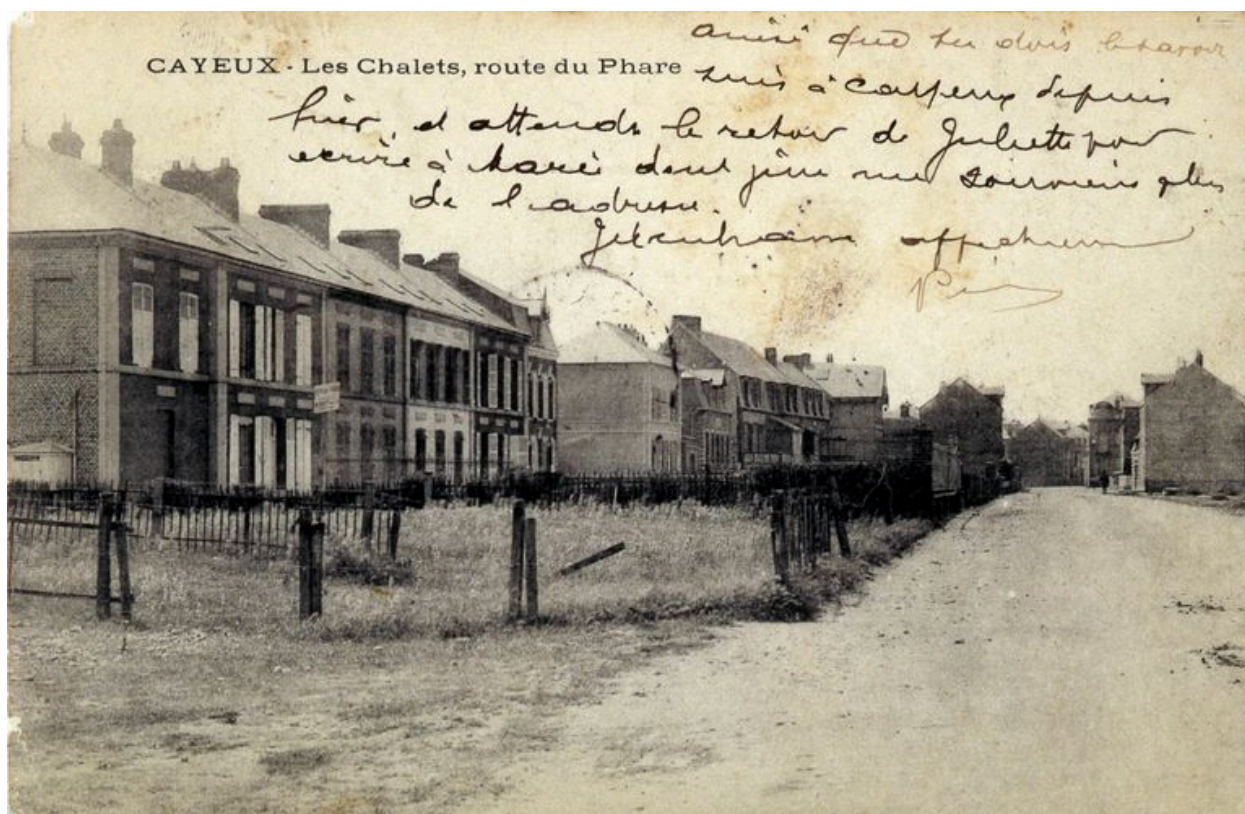 CAYEUX - Les Chalets, route du Phare
que tu dois le savoir
suis à Cayeux depuis
hier, et attends le retour de Juliette pour
ecrire à Marie dont j'en me souviens plus
de l'adresse.